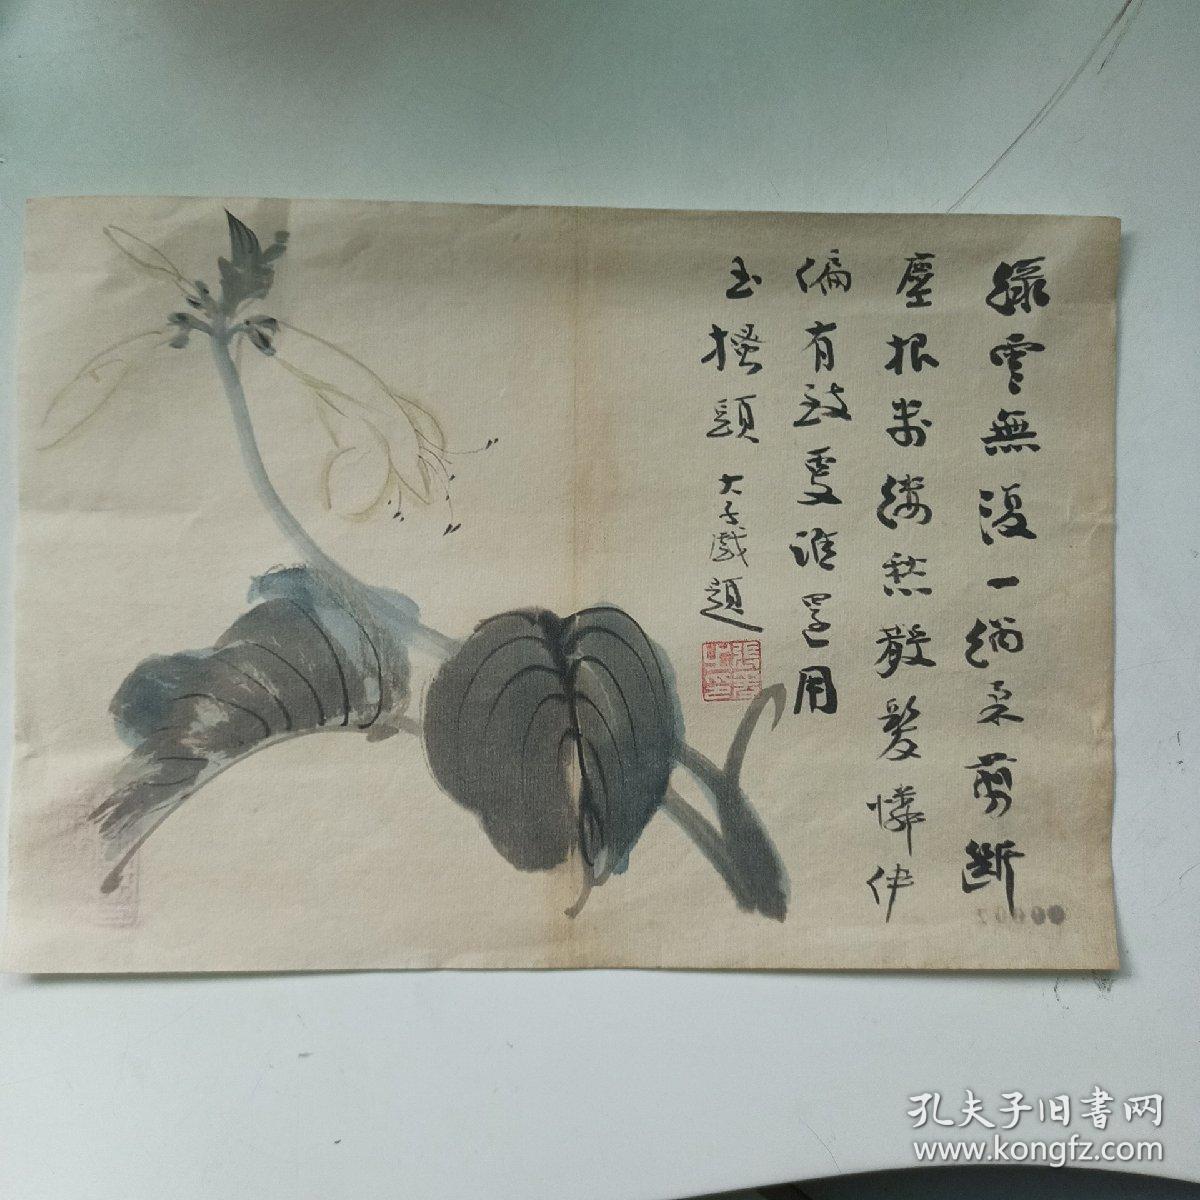 綠雲無復一絢柔剪斷
塵根萬縷愁散髮憐伊
偏有致更誰還用
玉搔頭
大千戲題
張爰之印
孔夫子旧書网
www.kongfz.com